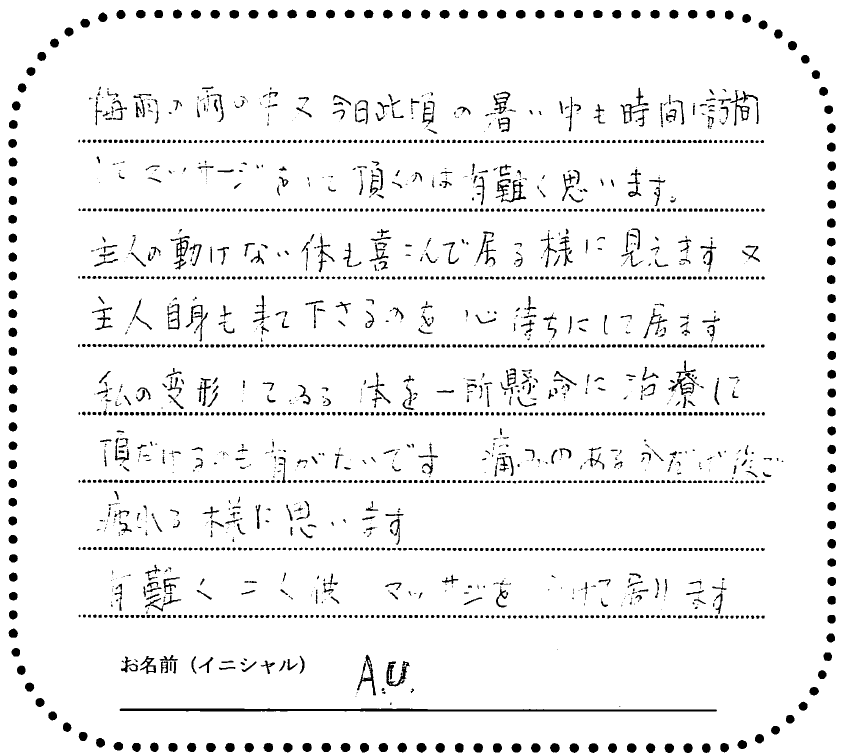 梅雨の雨の中又今日此頃の暑い中も時間に訪問
してマッサージをして頂くのは有難く思います。
主人の動けない体も喜こんで居る様に見えます 又
主人自身も来て下さるのを 心待ちにして居ます
私の変形してゐる 体を一所懸命に治療して
頂だけるのも有がたいです 痛みのある分だけ後で
疲れる様に思います
有難く マッサジを うけて居ります
お名前(イニシャル) A.U.